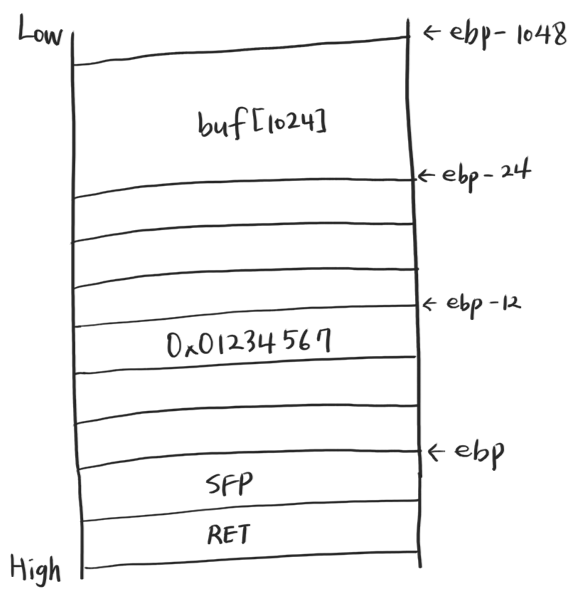 Low
← ebp-1048
buf[1024]
← ebp-24
← ebp-12
0x01234567
← ebp
SFP
RET
High